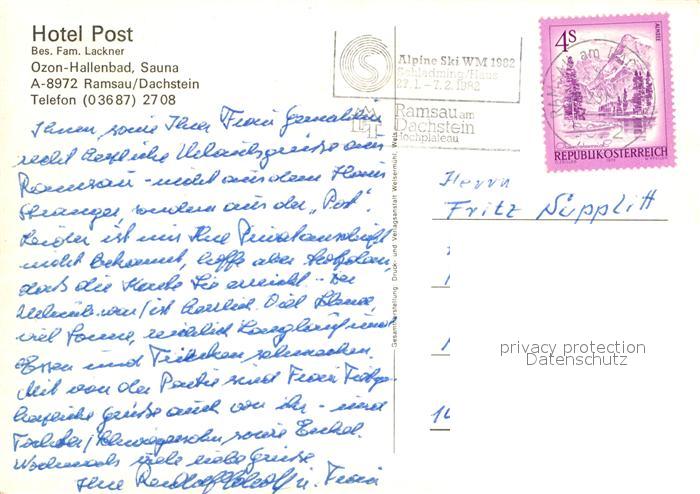 Hotel Post
Bes. Fam. Lackner
Ozon-Hallenbad, Sauna
A-8972 Ramsau/Dachstein
Telefon (03687) 2708
Ihnen, sowie Ihrer Frau Gemahlin
recht herzliche Urlaubsgrüße aus
Ramsau - nicht aus dem Haus
sondern aus der "Post".
Leider ist mir Ihre Privatanschrift
nicht bekannt, hoffe aber trotzdem,
dass die Karte Sie erreicht. - Der
ist herrlich. Viel
viel Sonne, Langlauf und
Essen und Trinken schmecken.
Mit von der Partie sind Frau
herzliche Grüße auch von ihr - und
Tochter/Schwiegersohn sowie Enkel.
Nochmals viele liebe Grüße
Ihre u. Frau
Gesamtherstellung: Druck- und Verlagsanstalt Welsermühl, Wels
Alpine Ski WM 1982
Schladming/Haus
27.1. - 7.2.1982
Ramsau am
Dachstein
Hochplateau
4S
ALMSEE
REPUBLIK ÖSTERREICH
Herrn
Fritz Süpplitt
privacy protection
Datenschutz